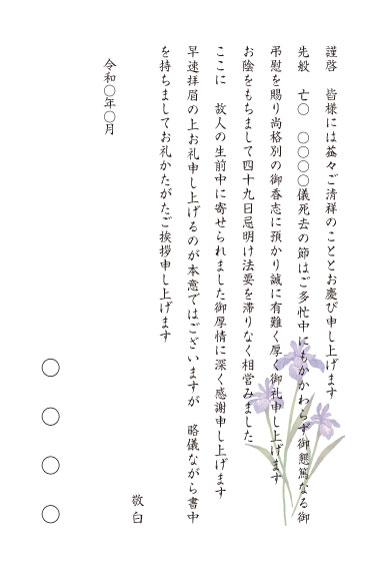 謹啓　皆様には益々ご清祥のこととお慶び申し上げます
先般　亡〇　〇〇〇〇儀死去の節はご多忙中にもかかわらず御懇篤なる御
弔慰を賜り尚格別の御香志に預かり誠に有難く厚く御礼申し上げます
お陰をもちまして四十九日忌明け法要を滞りなく相営みました
ここに　故人の生前中に寄せられました御厚情に深く感謝申し上げます
早速拝眉の上お礼申し上げるのが本意ではございますが　略儀ながら書中
を持ちましてお礼かたがたご挨拶申し上げます
敬白
令和〇年〇月
〇〇〇〇